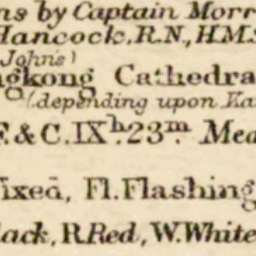 ns by Captain Morr
Hancock, R.N., H.M.S
Johns)
gkong Cathedra
(depending upon
F. & C. IXh. 23m. Mea
ixed, Fl. Flashing
lack, R. Red, W. White